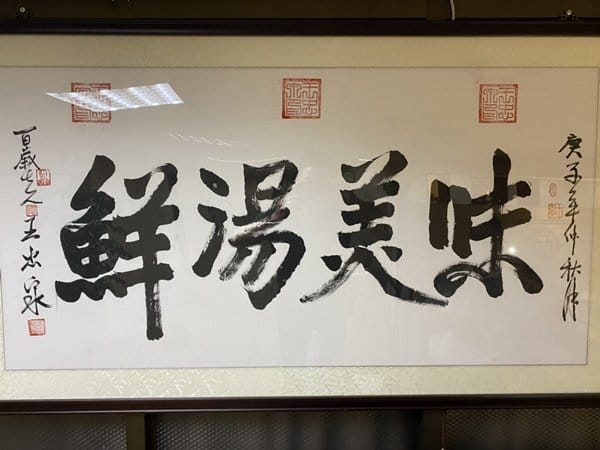 庚子年仲秋
味美湯鮮
百歲老人王忠